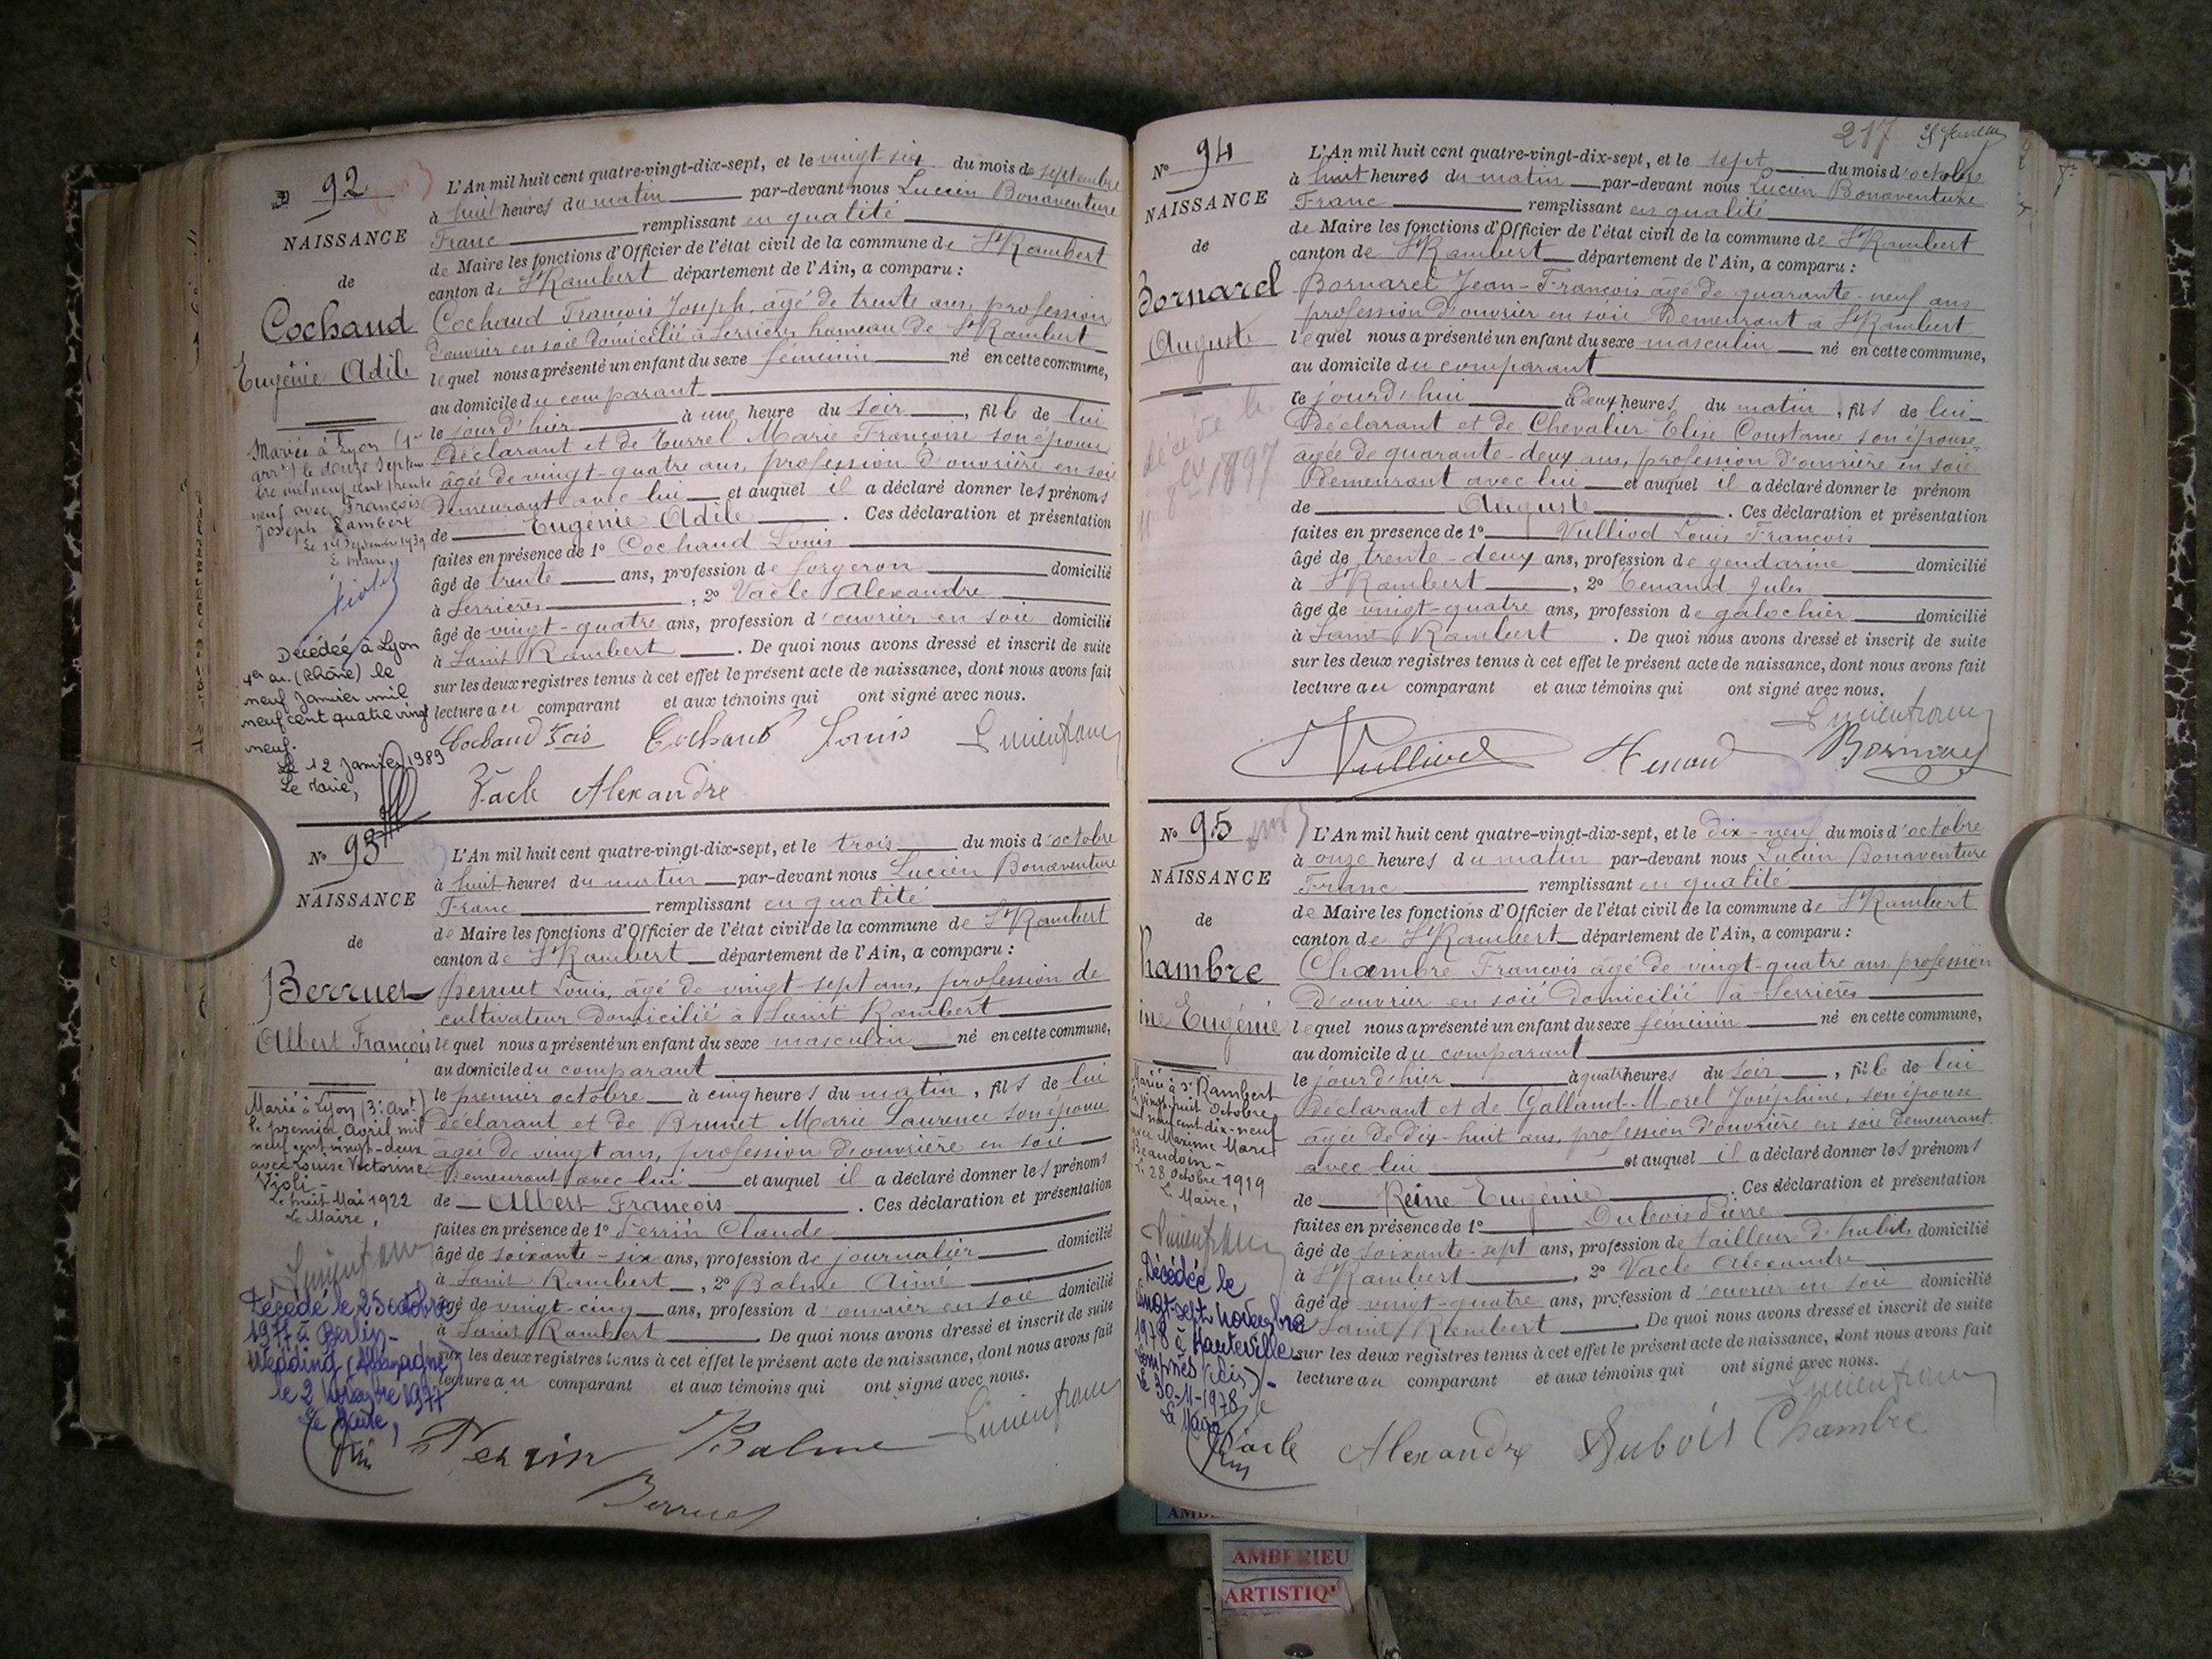 N° 92
NAISSANCE
de
Cochaud
Eugénie Adile
Mariée à Lyon
arrt) le douze Septem-
bre mil neuf cent trente
neuf avec François
Joseph Lambert
Le Maire,
Décédée à Lyon
4er ar. (Rhône) le
neuf Janvier mil
neuf cent quatre vingt
neuf.
Le 12 Janvier 1989
Le Maire,
L'An mil huit cent quatre-vingt-dix-sept, et le vingt-six du mois de septembre
à huit heures du matin par-devant nous Lucien Bonaventure
Franc remplissant en qualité
de Maire les fonctions d'Officier de l'état civil de la commune de St Rambert
canton de St Rambert département de l'Ain, a comparu :
Cochaud François Joseph, âgé de trente ans, profession
d'ouvrier en soie domicilié à Serrières hameau de St Rambert
lequel nous a présenté un enfant du sexe féminin né en cette commune,
au domicile du comparant
le jour d'hier à une heure du soir, fille de lui
déclarant et de Turrel Marie Françoise son épouse
âgée de vingt-quatre ans, profession d'ouvrière en soie
demeurant avec lui et auquel il a déclaré donner les prénoms
de Eugénie Adile. Ces déclaration et présentation
faites en présence de 1° Cochaud Louis
âgé de trente ans, profession de forgeron domicilié
à Serrières, 2° Vacle Alexandre
âgé de vingt-quatre ans, profession d'ouvrier en soie domicilié
à Saint Rambert. De quoi nous avons dressé et inscrit de suite
sur les deux registres tenus à cet effet le présent acte de naissance, dont nous avons fait
lecture au comparant et aux témoins qui ont signé avec nous.
Cochaud Fois Cochaud Louis Lucien franc
Vacle Alexandre
N° 93
NAISSANCE
de
Berruet
Albert François
Marié à Lyon (3e arrt)
le premier avril mil
neuf cent vingt-deux
avec Louise Victorine
Violi -
Le huit Mai 1922
Le Maire,
Lucien franc
Décédé le 25 octobre
1977 à Berlin-
Wedding (Allemagne)
le 2 Novembre 1977
Le Maire,
L'An mil huit cent quatre-vingt-dix-sept, et le trois du mois d'octobre
à huit heures du matin par-devant nous Lucien Bonaventure
Franc remplissant en qualité
de Maire les fonctions d'Officier de l'état civil de la commune de St Rambert
canton de St Rambert département de l'Ain, a comparu :
Berruet Louis, âgé de vingt-sept ans, profession de
cultivateur domicilié à Saint Rambert
lequel nous a présenté un enfant du sexe masculin né en cette commune,
au domicile du comparant
le premier octobre à cinq heures du matin, fils de lui
déclarant et de Brunet Marie Laurence son épouse
âgée de vingt ans, profession d'ouvrière en soie
demeurant avec lui et auquel il a déclaré donner les prénoms
de Albert François. Ces déclaration et présentation
faites en présence de 1° Perrin Claude
âgé de soixante-six ans, profession de journalier domicilié
à Saint Rambert, 2° Balme Aimé
âgé de vingt-cinq ans, profession d'ouvrier en soie domicilié
à Saint Rambert. De quoi nous avons dressé et inscrit de suite
sur les deux registres tenus à cet effet le présent acte de naissance, dont nous avons fait
lecture au comparant et aux témoins qui ont signé avec nous.
Perrin Balme Lucien franc
Berruet
217
N° 94
NAISSANCE
de
Bornarel
Auguste
décédé le
1897
L'An mil huit cent quatre-vingt-dix-sept, et le sept du mois d'octobre
à huit heures du matin par-devant nous Lucien Bonaventure
Franc remplissant en qualité
de Maire les fonctions d'Officier de l'état civil de la commune de St Rambert
canton de St Rambert département de l'Ain, a comparu :
Bornarel Jean-François âgé de quarante-neuf ans
profession d'ouvrier en soie demeurant à St Rambert
lequel nous a présenté un enfant du sexe masculin né en cette commune,
au domicile du comparant
le jourd'hui à deux heures du matin, fils de lui
déclarant et de Chevalier Elise Constance son épouse
âgée de quarante-deux ans, profession d'ouvrière en soie
demeurant avec lui et auquel il a déclaré donner le prénom
de Auguste. Ces déclaration et présentation
faites en présence de 1° Vulliod Louis François
âgé de trente-deux ans, profession de gendarme domicilié
à St Rambert, 2° Tenand Jules
âgé de vingt-quatre ans, profession de galochier domicilié
à Saint Rambert. De quoi nous avons dressé et inscrit de suite
sur les deux registres tenus à cet effet le présent acte de naissance, dont nous avons fait
lecture au comparant et aux témoins qui ont signé avec nous.
Lucien franc
Vulliod Tenand Bornarel
N° 95
NAISSANCE
de
hambre
ine Eugénie
Mariée à St Rambert
le vingt huit Octobre
mil neuf cent dix-neuf
avec Maxime Marc
Beaudoin -
Le 28 Octobre 1919
Le Maire,
Lucien franc
Décédée le
vingt-sept Novembre
1978 à Hauteville
Lompnès (Ain) -
le 30-11-1978
Le Maire
L'An mil huit cent quatre-vingt-dix-sept, et le dix-neuf du mois d'octobre
à onze heures du matin par-devant nous Lucien Bonaventure
Franc remplissant en qualité
de Maire les fonctions d'Officier de l'état civil de la commune de St Rambert
canton de St Rambert département de l'Ain, a comparu :
Chambre François âgé de vingt-quatre ans profession
d'ouvrier en soie domicilié à Serrières
lequel nous a présenté un enfant du sexe féminin né en cette commune,
au domicile du comparant
le jour d'hier à quatre heures du soir, fille de lui
déclarant et de Galland-Morel Joséphine, son épouse
âgée de dix-huit ans, profession d'ouvrière en soie demeurant
avec lui et auquel il a déclaré donner les prénoms
de Reine Eugénie. Ces déclaration et présentation
faites en présence de 1° Dubois Pierre
âgé de soixante-sept ans, profession de tailleur d'habits domicilié
à St Rambert, 2° Vacle Alexandre
âgé de vingt-quatre ans, profession d'ouvrier en soie domicilié
à Saint Rambert. De quoi nous avons dressé et inscrit de suite
sur les deux registres tenus à cet effet le présent acte de naissance, dont nous avons fait
lecture au comparant et aux témoins qui ont signé avec nous.
Lucien franc
Vacle Alexandre Dubois Chambre
AMBERIEU
ARTISTIQ